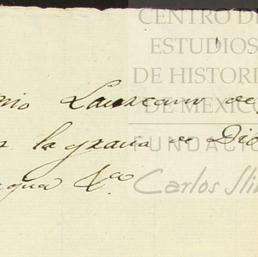 CENTRO DE
ESTUDIOS
DE HISTORI
DE MÉXICO
FUNDACIÓN
Carlos Sli
nio Laureano de
la gracia de Dio
&co